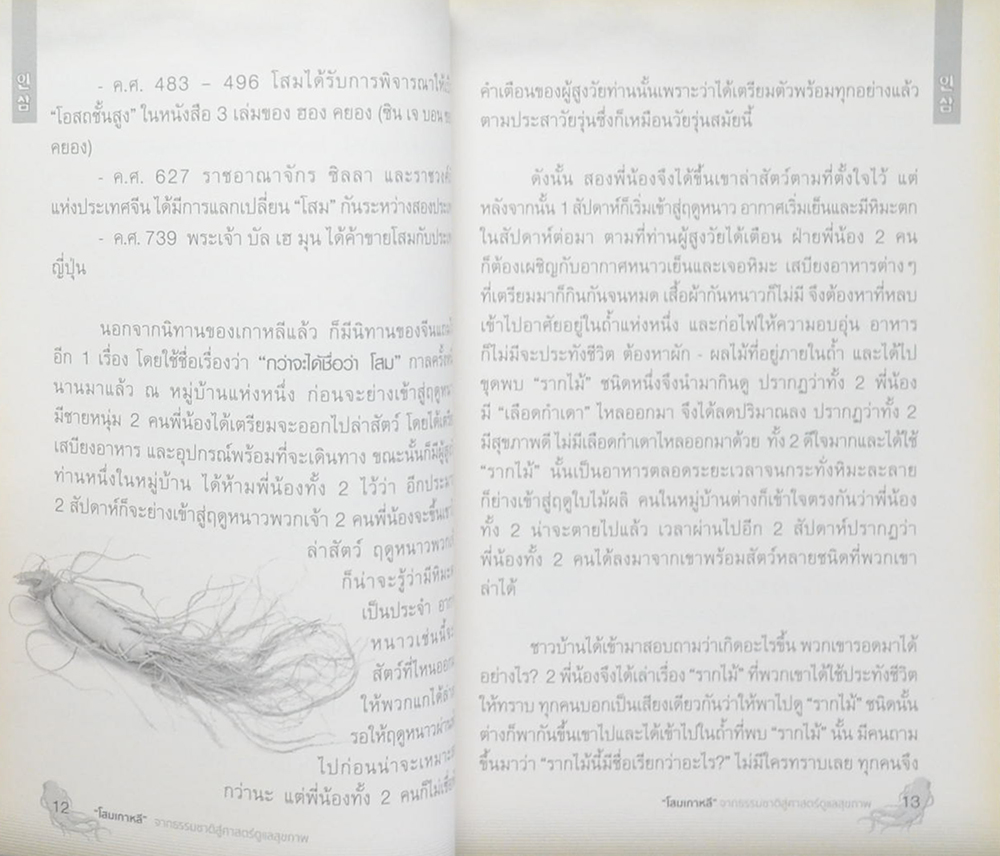 인삼
- ค.ศ. 483 – 496 โสมได้รับการพิจารณาให้
"โอสถชั้นสูง" ในหนังสือ 3 เล่มของ ฮอง คยอง (ซิน เจ บอน
คยอง)
- ค.ศ. 627 ราชอาณาจักร ซิลลา และ
แห่งประเทศจีน ได้มีการแลกเปลี่ยน "โสม" กันระหว่างสอง
- ค.ศ. 739 พระเจ้า บัล เฮ มุน ได้ค้าขายโสมกับ
ญี่ปุ่น
นอกจากนิทานของเกาหลีแล้ว ก็มีนิทานของจีน
อีก 1 เรื่อง โดยใช้ชื่อเรื่องว่า "กว่าจะได้ชื่อว่า โสม"
นานมาแล้ว ณ หมู่บ้านแห่งหนึ่ง ก่อนจะย่างเข้าสู่
มีชายหนุ่ม 2 คนพี่น้องได้เตรียมจะออกไปล่าสัตว์ โดย
เสบียงอาหาร และอุปกรณ์พร้อมที่จะเดินทาง ขณะนั้นก็มี
ท่านหนึ่งในหมู่บ้าน ได้ห้ามพี่น้องทั้ง 2 ไว้ว่า
2 สัปดาห์ก็จะย่างเข้าสู่ฤดูหนาวพวกเจ้า 2 คนพี่น้อง
ล่าสัตว์ ฤดูหนาว
ก็น่าจะรู้ว่ามี
เป็นประจำ
หนาวเช่นนี้
สัตว์ที่ไหน
ให้พวกแกได้
รอให้ฤดูหนาว
ไปก่อนน่าจะ
กว่านะ แต่พี่น้องทั้ง 2 คนก็
12
"โสมเกาหลี" จากธรรมชาติสู่ศาสตร์ดูแลสุขภาพ
인삼
คำเตือนของผู้สูงวัยท่านนั้นเพราะว่าได้เตรียมตัวพร้อมทุกอย่างแล้ว
ตามประสาวัยรุ่นซึ่งก็เหมือนวัยรุ่นสมัยนี้
ดังนั้น สองพี่น้องจึงได้ขึ้นเขาล่าสัตว์ตามที่ตั้งใจไว้ แต่
หลังจากนั้น 1 สัปดาห์ก็เริ่มเข้าสู่ฤดูหนาว อากาศเริ่มเย็นและมีหิมะตก
ในสัปดาห์ต่อมา ตามที่ท่านผู้สูงวัยได้เตือน ฝ่ายพี่น้อง 2 คน
ก็ต้องเผชิญกับอากาศหนาวเย็นและเจอหิมะ เสบียงอาหารต่างๆ
ที่เตรียมมาก็กินกันจนหมด เสื้อผ้ากันหนาวก็ไม่มี จึงต้องหาที่หลบ
เข้าไปอาศัยอยู่ในถ้ำแห่งหนึ่ง และก่อไฟให้ความอบอุ่น อาหาร
ก็ไม่มีจะประทังชีวิต ต้องหาผัก - ผลไม้ที่อยู่ภายในถ้ำ และได้ไป
ขุดพบ "รากไม้" ชนิดหนึ่งจึงนำมากินดู ปรากฏว่าทั้ง 2 พี่น้อง
มี "เลือดกำเดา" ไหลออกมา จึงได้ลดปริมาณลง ปรากฏว่าทั้ง 2
มีสุขภาพดี ไม่มีเลือดกำเดาไหลออกมาด้วย ทั้ง 2 ดีใจมากและได้ใช้
"รากไม้" นั้นเป็นอาหารตลอดระยะเวลาจนกระทั่งหิมะละลาย
ก็ย่างเข้าสู่ฤดูใบไม้ผลิ คนในหมู่บ้านต่างก็เข้าใจตรงกันว่าพี่น้อง
ทั้ง 2 น่าจะตายไปแล้ว เวลาผ่านไปอีก 2 สัปดาห์ปรากฏว่า
พี่น้องทั้ง 2 คนได้ลงมาจากเขาพร้อมสัตว์หลายชนิดที่พวกเขา
ล่าได้
ชาวบ้านได้เข้ามาสอบถามว่าเกิดอะไรขึ้น พวกเขารอดมาได้
อย่างไร? 2 พี่น้องจึงได้เล่าเรื่อง "รากไม้" ที่พวกเขาได้ใช้ประทังชีวิต
ให้ทราบ ทุกคนบอกเป็นเสียงเดียวกันว่าให้พาไปดู "รากไม้" ชนิดนั้น
ต่างก็พากันขึ้นเขาไปและได้เข้าไปในถ้ำที่พบ "รากไม้" นั้น มีคนถาม
ขึ้นมาว่า "รากไม้นี้มีชื่อเรียกว่าอะไร?" ไม่มีใครทราบเลย ทุกคนจึง
"โสมเกาหลี" จากธรรมชาติสู่ศาสตร์ดูแลสุขภาพ
13